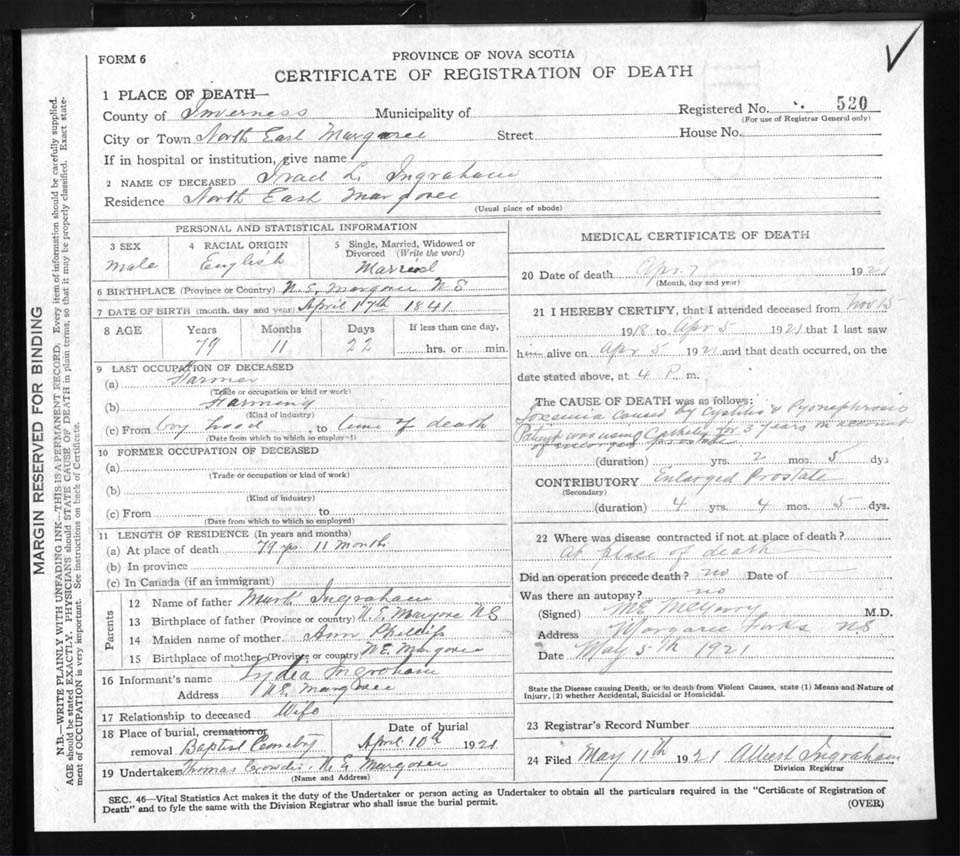 FORM 6
PROVINCE OF NOVA SCOTIA
CERTIFICATE OF REGISTRATION OF DEATH
1 PLACE OF DEATH—
County of Inverness Municipality of
Registered No. 520
(For use of Registrar General only)
City or Town North East Margaree Street House No.
If in hospital or institution, give name
2 NAME OF DECEASED Israel L. Ingraham
Residence North East Margaree
(Usual place of abode)
PERSONAL AND STATISTICAL INFORMATION
3 SEX 4 RACIAL ORIGIN 5 Single, Married, Widowed or Divorced (Write the word)
Male English Married
6 BIRTHPLACE (Province or Country) N.E. Margaree N S
7 DATE OF BIRTH (month, day and year) April 17th 1841
8 AGE Years Months Days If less than one day,
79 11 22 hrs. or min.
9 LAST OCCUPATION OF DECEASED
(a) Farmer
(Trade or occupation or kind or work)
(b) Farming
(Kind of industry)
(c) From boy hood, to time of death
(Date from which to which so employed)
10 FORMER OCCUPATION OF DECEASED
(a)
(Trade or occupation or kind of work)
(b)
(Kind of industry)
(c) From to
(Date from which to which so employed)
11 LENGTH OF RESIDENCE (In years and months)
(a) At place of death 79 yrs 11 months
(b) In province
(c) In Canada (if an immigrant)
Parents
12 Name of father Mark Ingraham
13 Birthplace of father (Province or country) N.E. Margaree NS
14 Maiden name of mother Ann Phillips
15 Birthplace of mother (Province or country) N E. Margaree
16 Informant's name Lydia Ingraham
Address N.E. Margaree
17 Relationship to deceased Wife
18 Place of burial, cremation or Date of burial
removal Baptist Cemetry April 10th 1921
19 Undertaker Thomas N E Margaree
(Name and Address)
MEDICAL CERTIFICATE OF DEATH
20 Date of death Apr. 7 1921
(Month, day and year)
21 I HEREBY CERTIFY, that I attended deceased from Nov 15
1918 to Apr 5 1921 that I last saw
him alive on Apr 5 1921 and that death occurred, on the
date stated above, at 4 P. m.
The CAUSE OF DEATH was as follows:
Toxemia caused by Cystitis & Pyonephrosis
Patient was using Catheter for 3 years on account
of enlarged prostate
(duration) yrs. 2 mos. 5 dys
CONTRIBUTORY Enlarged Prostate
(Secondary)
(duration) 4 yrs. 4 mos. 5 dys.
22 Where was disease contracted if not at place of death?
At place of death
Did an operation precede death? no Date of —
Was there an autopsy? no
(Signed) M.D.
Address Margaree Forks N S
Date May 5th 1921
State the Disease causing Death, or in death from Violent Causes, state (1) Means and Nature of
Injury, (2) whether Accidental, Suicidal or Homicidal.
23 Registrar's Record Number
24 Filed May 11th 1921 Albert Ingraham
Division Registrar
SEC. 46—Vital Statistics Act makes it the duty of the Undertaker or person acting as Undertaker to obtain all the particulars required in the "Certificate of Registration of
Death" and to fyle the same with the Division Registrar who shall issue the burial permit.
(OVER)
MARGIN RESERVED FOR BINDING
N.B.—WRITE PLAINLY WITH UNFADING INK—THIS IS A PERMANENT RECORD. Every item of information should be carefully supplied.
AGE should be stated EXACTLY. PHYSICIANS should STATE CAUSE OF DEATH in plain terms, so that it may be properly classified. Exact state-
ment of OCCUPATION is very important. See instructions on back of Certificate.